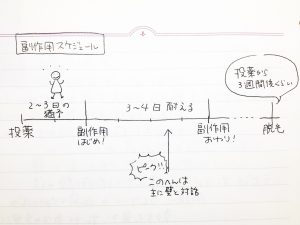 副作用スケジュール
2〜3日の
猶予
3〜4日耐える
投薬から
3週間後くらい
投薬
副作用
はじめ!
副作用
おわり!
脱毛
ピーク!!
このへんは
主に壁と対話